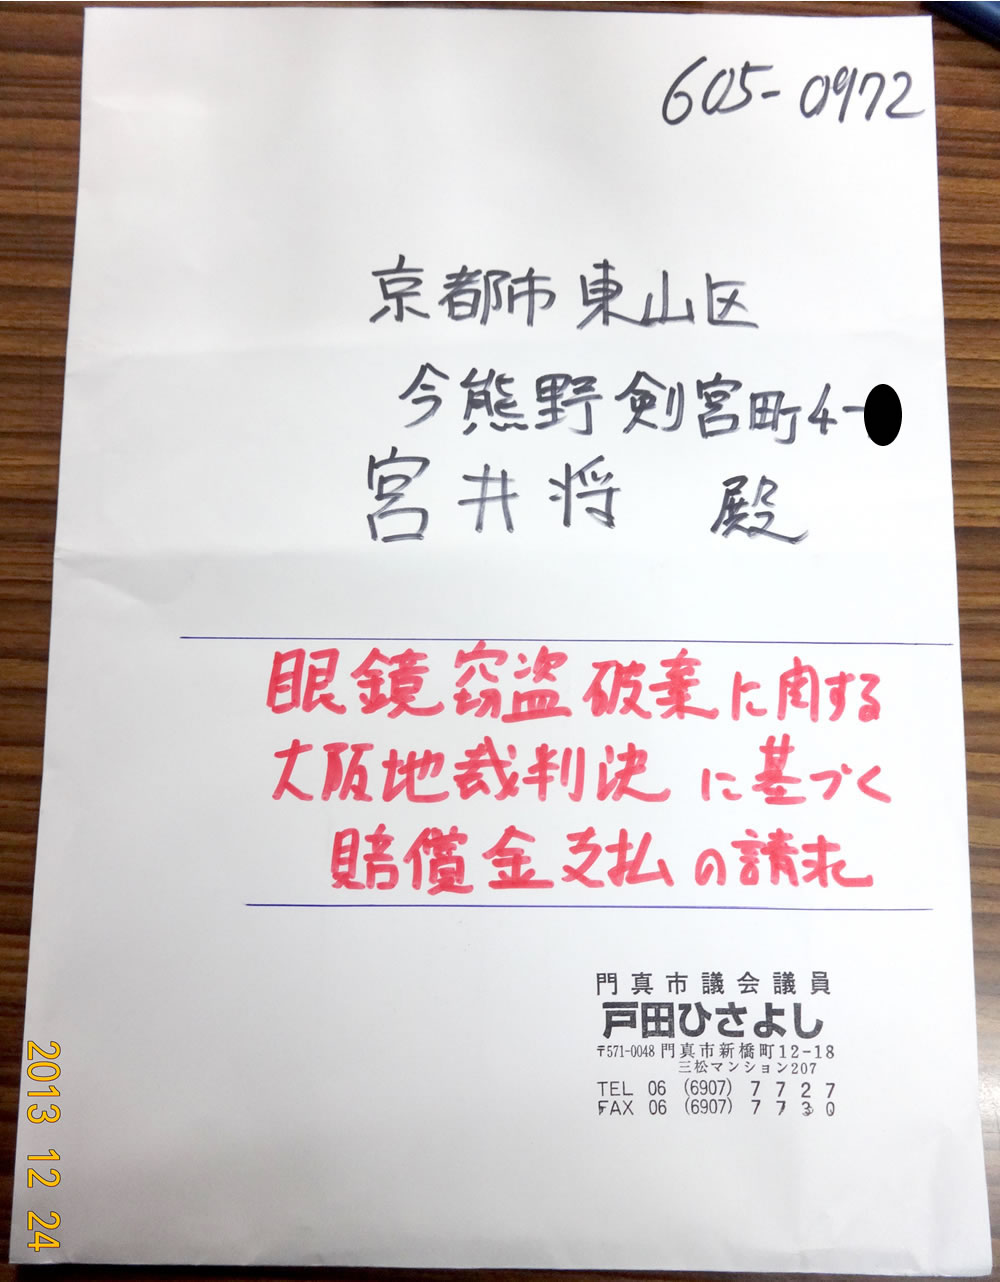 605-0972
京都市東山区
今熊野剣宮町4-
宮井将 殿
眼鏡窃盗破棄に関する
大阪地裁判決に基づく
賠償金支払の請求
門真市議会議員
戸田ひさよし
〒571-0048 門真市新橋町12-18
三松マンション207
TEL 06 (6907) 7727
FAX 06 (6907) 7730
2013 12 24